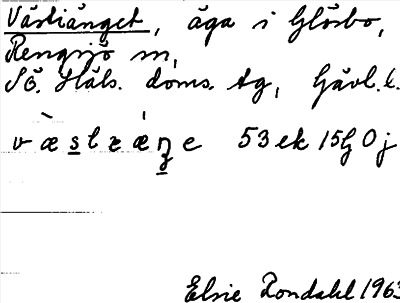 Västiänget, äga i Glösbo,
Rengsjö sn,
Sö. Häls. doms. tg, Gävl. l.
væstæŋe 53 ek 15G 0j
Elsie Rondahl 1963